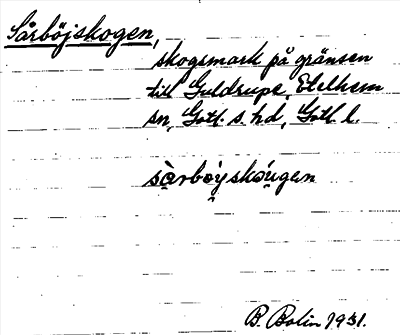 Sårböjskogen,
skogsmark på gränsen
till Guldrupe, Etelhem
sn, Gotl. s. hd, Gotl. l.
sàrbo̭yskóu̯gen
B. Bolin 1931.